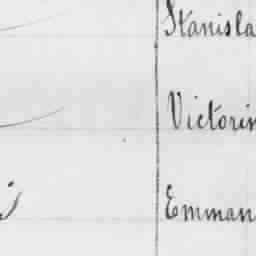 Stanisla
Victorin
Emman